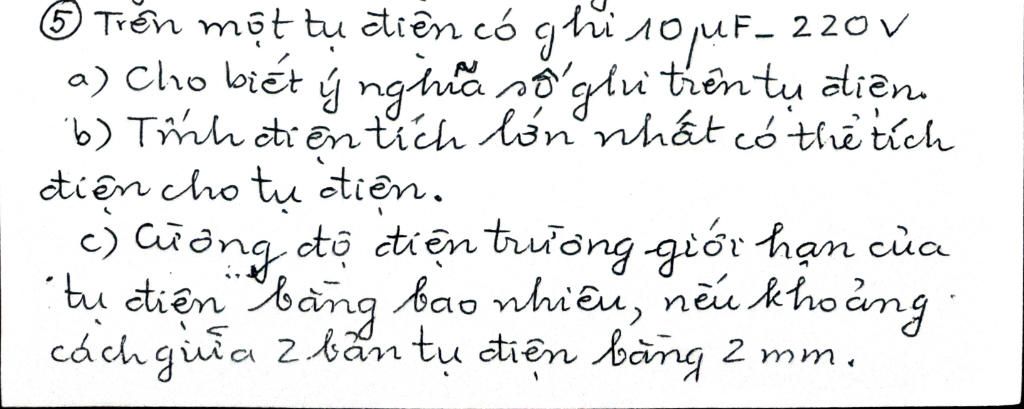 ⑤ Trên một tụ điện có ghi 10 μF - 220 V
a) Cho biết ý nghĩa số ghi trên tụ điện.
b) Tính điện tích lớn nhất có thể tích
điện cho tụ điện.
c) Cường độ điện trường giới hạn của
tụ điện bằng bao nhiêu, nếu khoảng
cách giữa 2 bản tụ điện bằng 2 mm.